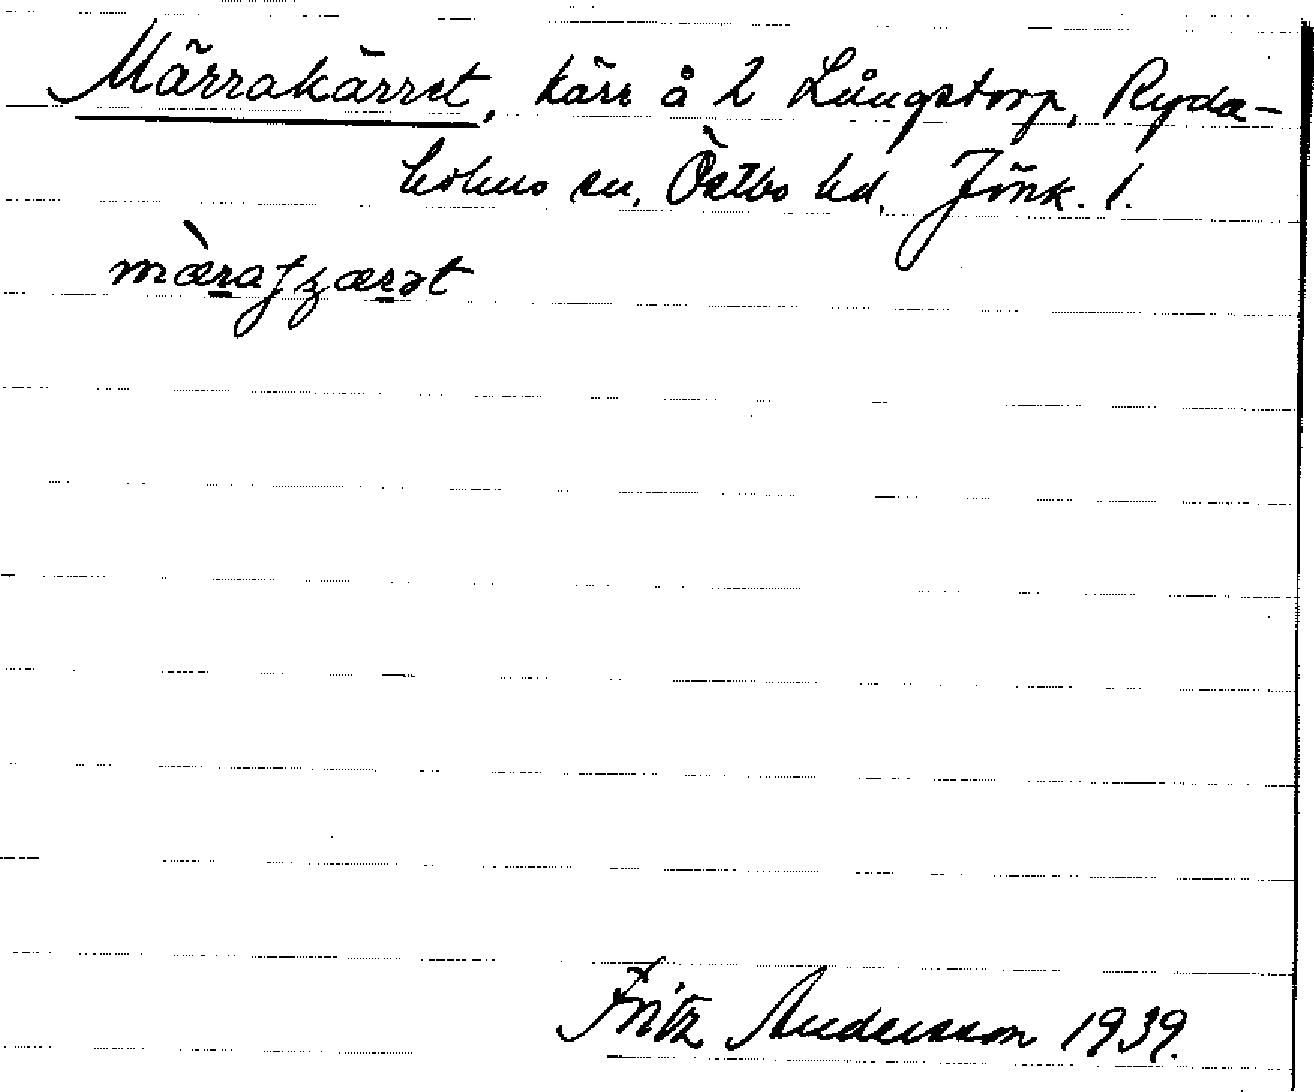 Märrakärret, kärr å 2 Långstorp, Ryda-
holms sn, Östbo hd, Jönk. l.
mæ̀raʃʒærət
Fritz Andersson 1939.